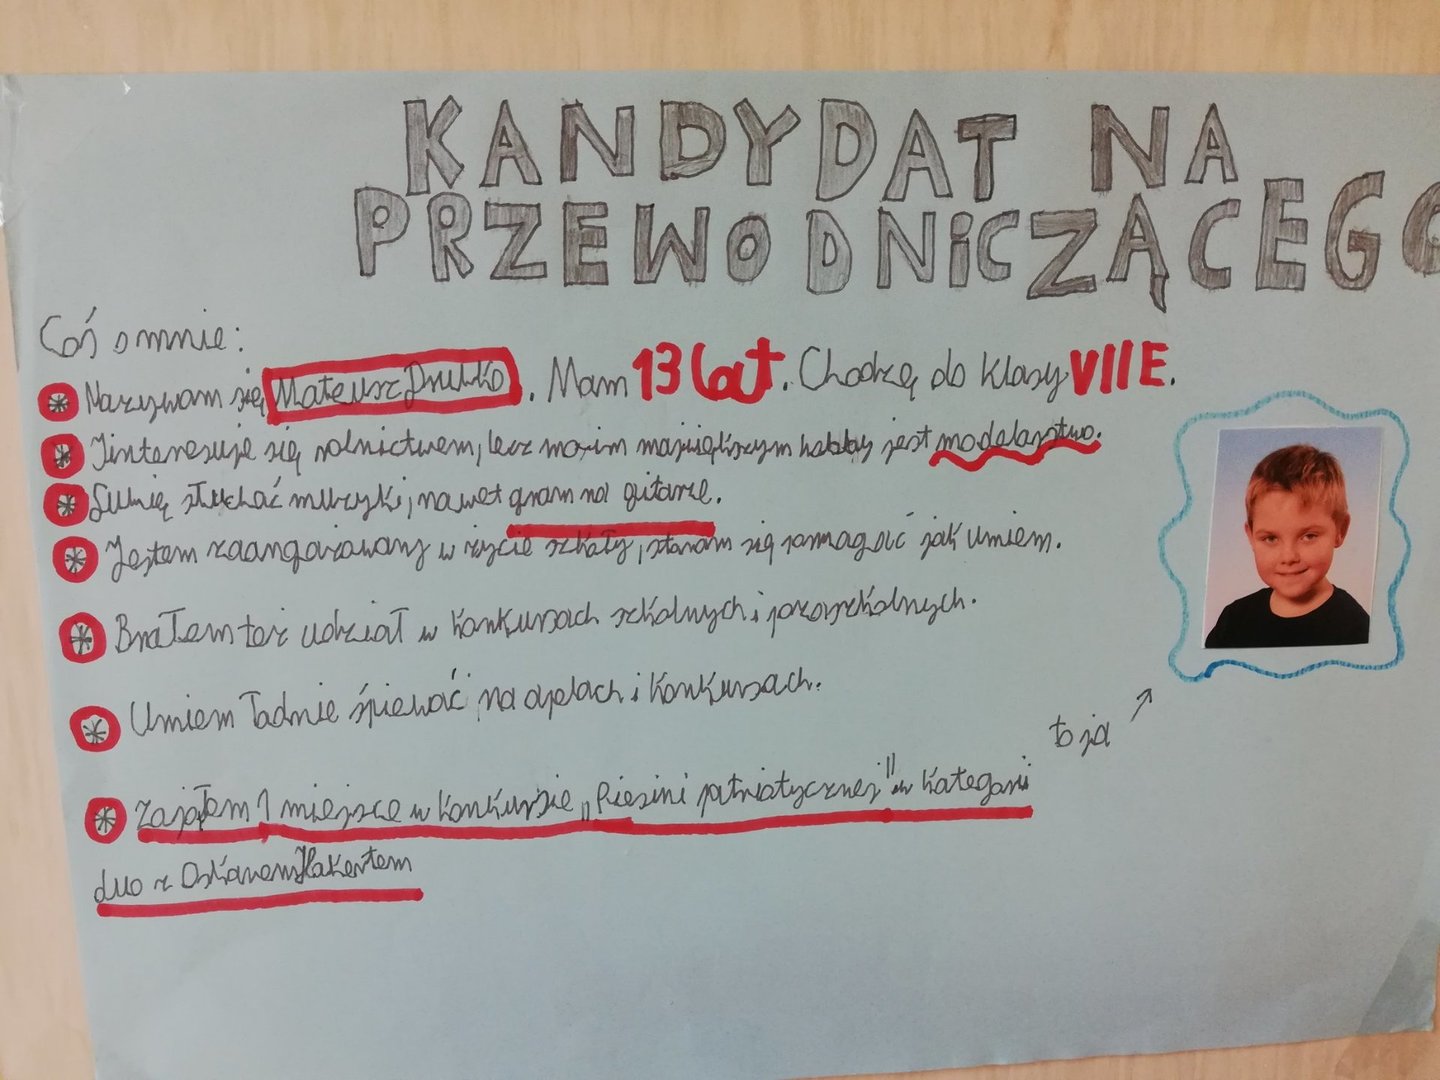 KANDYDAT NA
PRZEWODNICZĄCEGO
Coś o mnie:
Nazywam się Mateusz Drutko. Mam 13 lat. Chodzę do klasy VII E.
Iinteresuje się rolnictwem, lecz moim największym hobby jest modelarstwo.
Lubię słuchać muzyki, nawet gram na gitarze.
Jestem zaangażowany w życie szkoły, staram się pomagać jak umiem.
Brałem też udział w konkursach szkolnych i pozaszkolnych.
Umiem ładnie śpiewać na apelach i konkursach.
to ja
Zająłem 1 miejsce w konkursie „Piesini patriotycznej" w kategorii
duo z Oskarem Hakertem